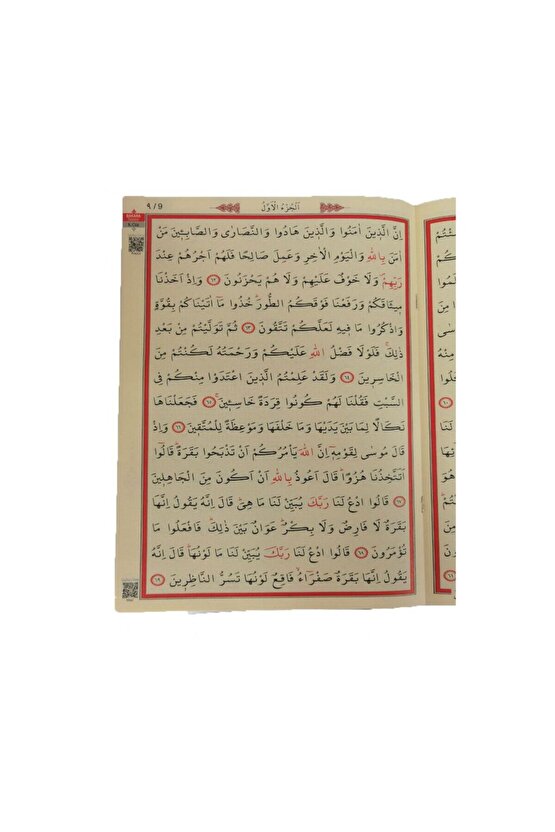 ٩ / 9
اَلْجُزْءُ الْاَوَّلُ
اِنَّ الَّذ۪ينَ اٰمَنُوا وَالَّذ۪ينَ هَادُوا وَالنَّصَارٰى وَالصَّابِـ۪ٔينَ مَنْ
اٰمَنَ بِاللّٰهِ وَالْيَوْمِ الْاٰخِرِ وَعَمِلَ صَالِحًا فَلَهُمْ اَجْرُهُمْ عِنْدَ
رَبِّهِمْۖ وَلَا خَوْفٌ عَلَيْهِمْ وَلَا هُمْ يَحْزَنُونَ ﴿٦٢﴾ وَاِذْ اَخَذْنَا
م۪يثَاقَكُمْ وَرَفَعْنَا فَوْقَكُمُ الطُّورَۜ خُذُوا مَٓا اٰتَيْنَاكُمْ بِقُوَّةٍ
وَاذْكُرُوا مَا ف۪يهِ لَعَلَّكُمْ تَتَّقُونَ ﴿٦٣﴾ ثُمَّ تَوَلَّيْتُمْ مِنْ بَعْدِ
ذٰلِكَۚ فَلَوْلَا فَضْلُ اللّٰهِ عَلَيْكُمْ وَرَحْمَتُهُ لَكُنْتُمْ مِنَ
الْخَاسِر۪ينَ ﴿٦٤﴾ وَلَقَدْ عَلِمْتُمُ الَّذ۪ينَ اعْتَدَوْا مِنْكُمْ فِي
السَّبْتِ فَقُلْنَا لَهُمْ كُونُوا قِرَدَةً خَاسِـ۪ٔينَۚ ﴿٦٥﴾ فَجَعَلْنَاهَا
نَكَالًا لِمَا بَيْنَ يَدَيْهَا وَمَا خَلْفَهَا وَمَوْعِظَةً لِلْمُتَّق۪ينَ ﴿٦٦﴾ وَاِذْ
قَالَ مُوسٰى لِقَوْمِه۪ٓ اِنَّ اللّٰهَ يَأْمُرُكُمْ اَنْ تَذْبَحُوا بَقَرَةًۜ قَالُٓوا
اَتَتَّخِذُنَا هُزُوًاۜ قَالَ اَعُوذُ بِاللّٰهِ اَنْ اَكُونَ مِنَ الْجَاهِل۪ينَ
﴿٦٧﴾ قَالُوا ادْعُ لَنَا رَبَّكَ يُبَيِّنْ لَنَا مَا هِيَۜ قَالَ اِنَّهُ يَقُولُ اِنَّهَا
بَقَرَةٌ لَا فَارِضٌ وَلَا بِكْرٌۜ عَوَانٌ بَيْنَ ذٰلِكَۜ فَافْعَلُوا مَا
تُؤْمَرُونَ ﴿٦٨﴾ قَالُوا ادْعُ لَنَا رَبَّكَ يُبَيِّنْ لَنَا مَا لَوْنُهَاۜ قَالَ اِنَّهُ
يَقُولُ اِنَّهَا بَقَرَةٌ صَفْرَٓاءُۙ فَاقِعٌ لَوْنُهَا تَسُرُّ النَّاظِر۪ينَ ﴿٦٩﴾